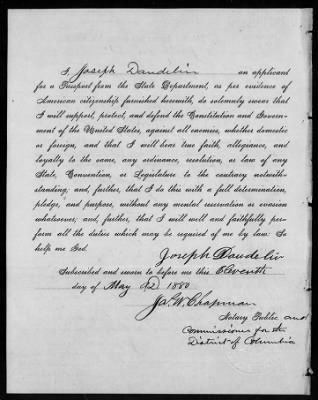 I, Joseph Dandelin an applicant
for a Passport from the State Department, as per evidence of
American citizenship furnished herewith, do solemnly swear that
I will support, protect, and defend the Constitution and Govern-
ment of the United States, against all enemies, whether domestic
or foreign, and that I will bear true faith, allegiance, and
loyalty to the same, any ordinance, resolution, or law of any
State, Convention, or Legislature to the contrary notwith-
standing; and, further, that I do this with a full determination,
pledge, and purpose, without any mental reservation or evasion
whatsoever; and, further, that I will well and faithfully per-
form all the duties which may be required of me by law: So
help me God.
Joseph Dandelin
Subscribed and sworn to before me this Eleventh
day of May 1880
Jas. W. Chapman
Notary Public and
Commissioner for the
District of Columbia